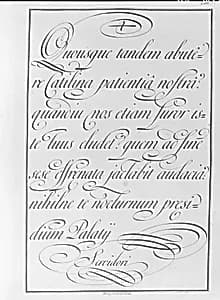 Quousque tandem abute-
re Catilina patientiâ nostrâ?
quamdiu nos etiam furor is-
te tuus eludet? quem ad fine
sese effrenata jactabit audacia?
nihilne te nocturnum presi-
dium Palatij